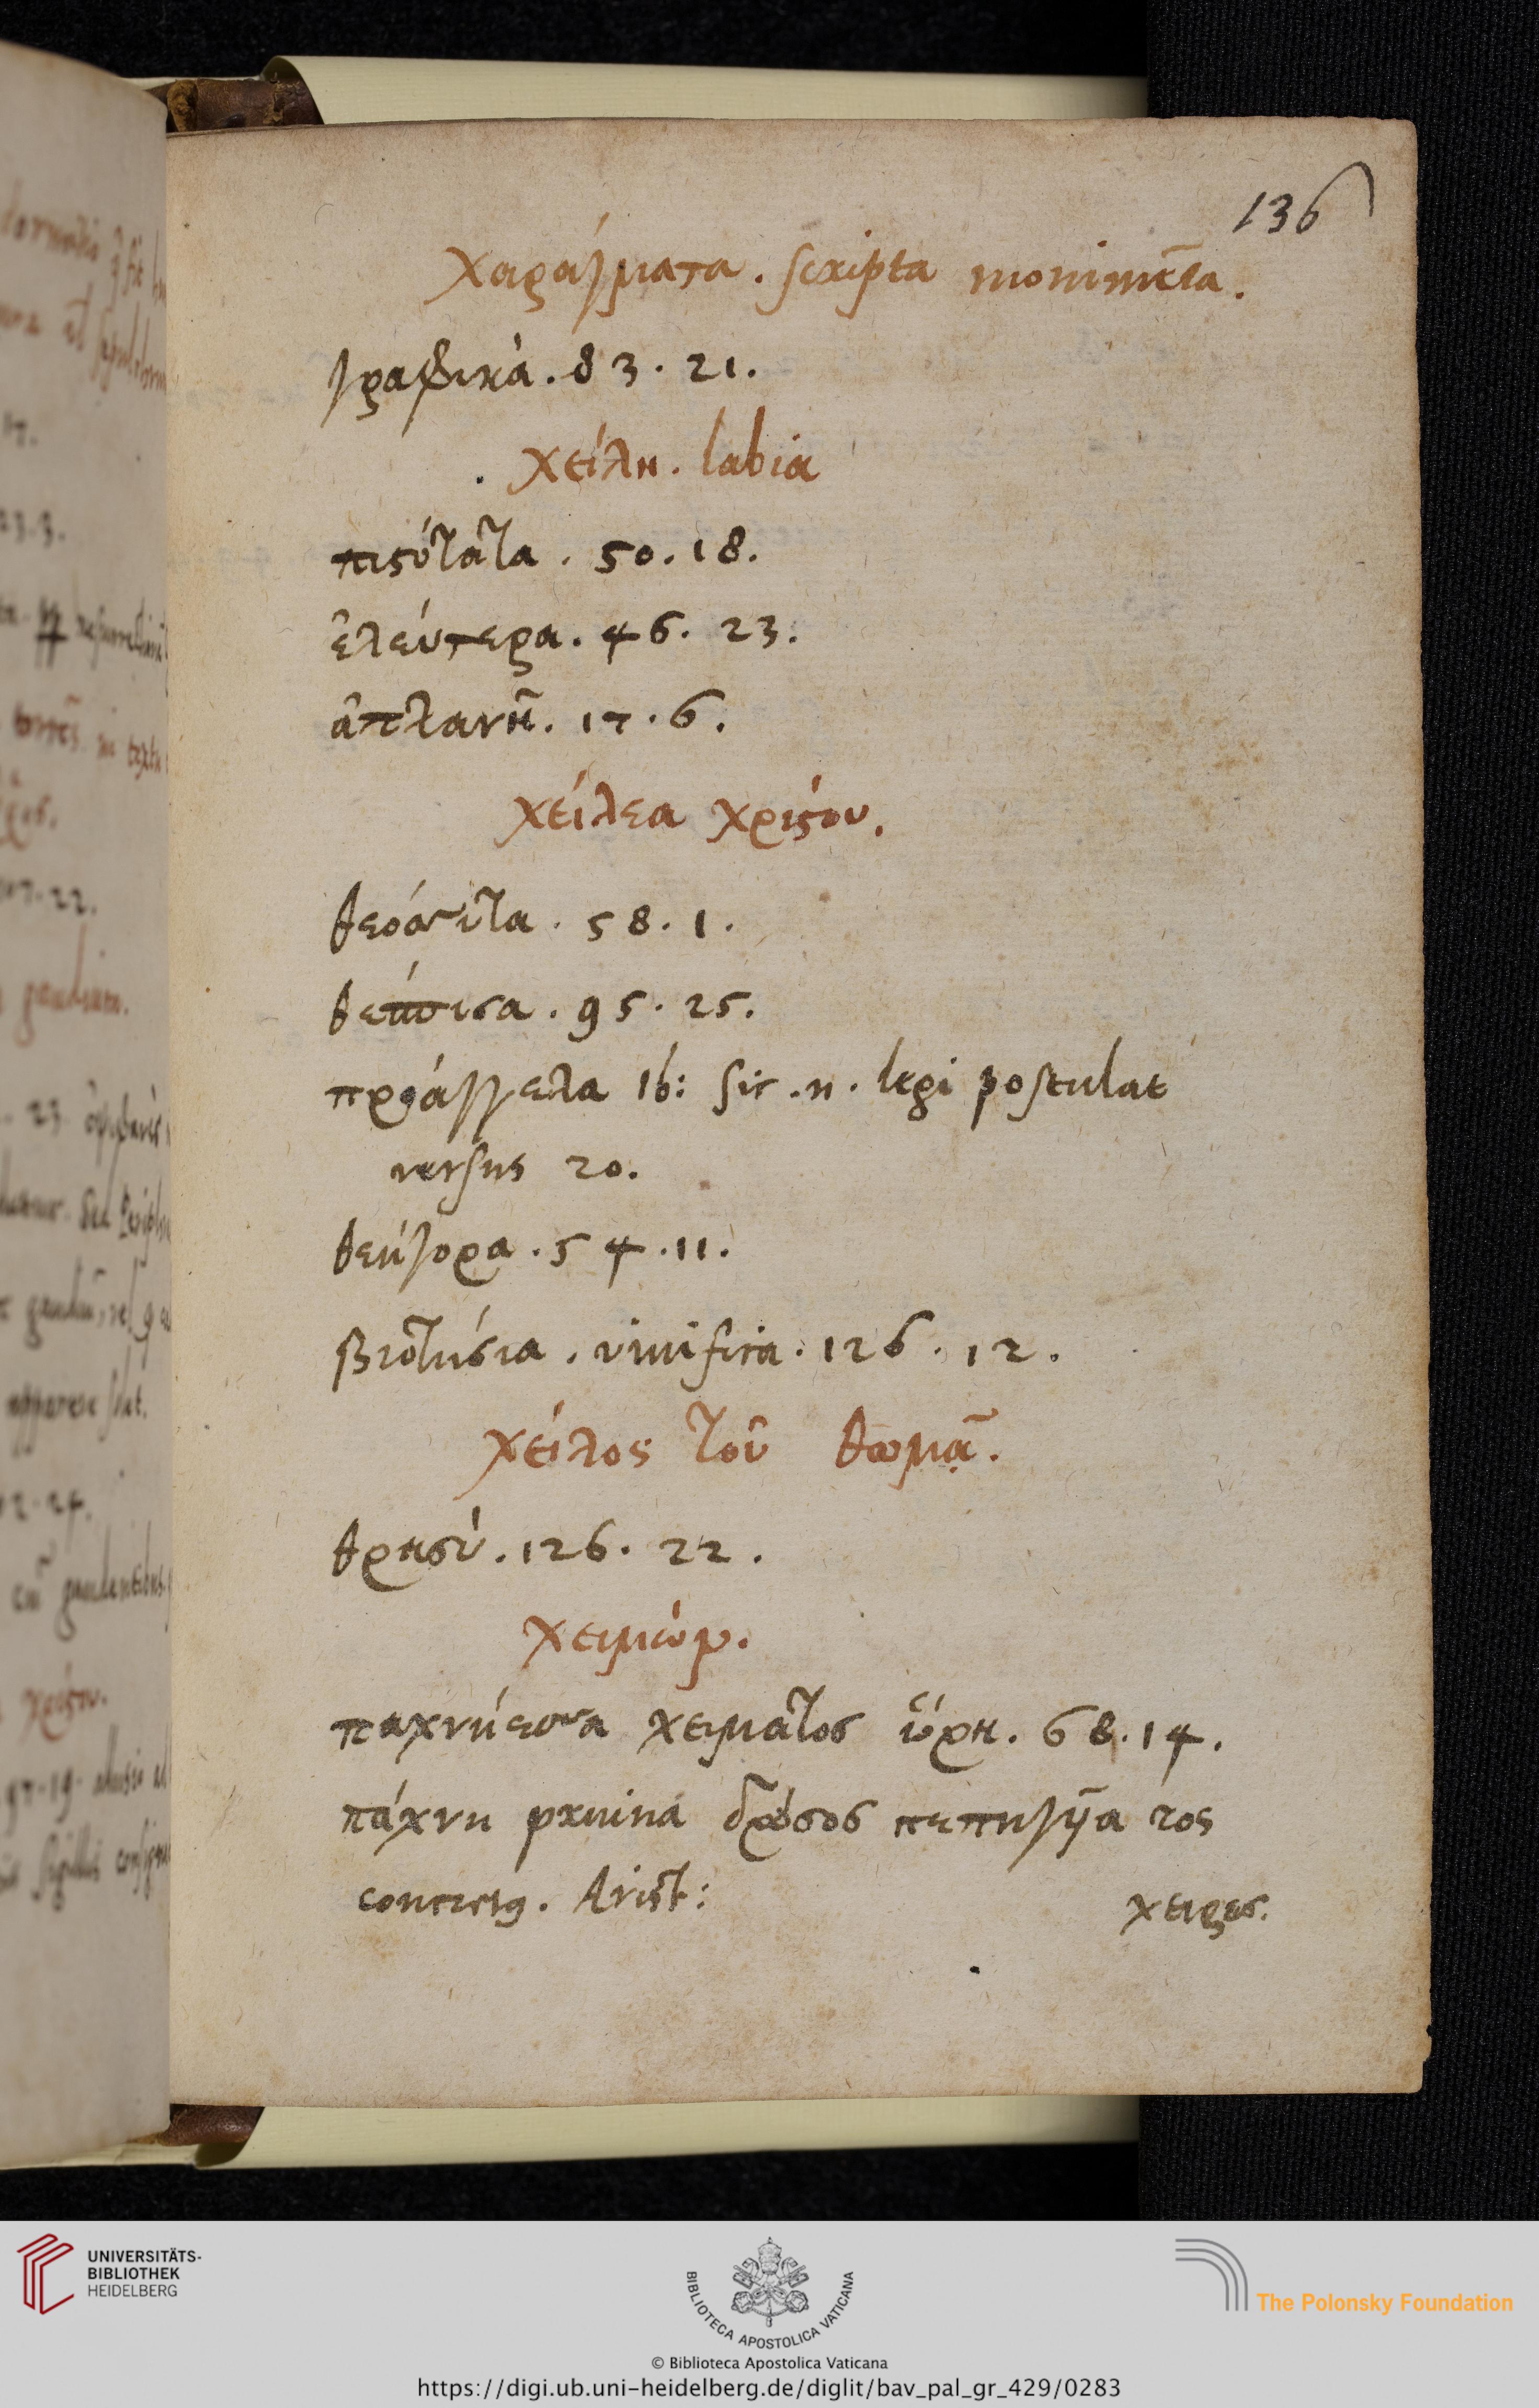 136
χαράγματα. scripta monimēta.
γραφικὰ. 83. 21.
χείλη. labia
πιϛότατα. 50. 18.
ἐλεύτερα. 46. 23.
ἀπλανῆ. 17. 6.
χείλεα χριϛου.
58. 1.
95. 25.
προάγγελα ib: sic. n. legi postulat
versus 20.
θεήγορα. 54. 11.
βιοτήσια. vivifica. 126. 12.
χείλος τοῦ θωμᾶ.
126. 22.
χειμών.
χείματος ὥρη. 68. 14.
πάχνη pruina δρόσος πεπηγῦα ros
Arist:
χειρες.
UNIVERSITÄTS-
BIBLIOTHEK
HEIDELBERG
BIBLIOTECA APOSTOLICA VATICANA
The Polonsky Foundation
© Biblioteca Apostolica Vaticana
https://digi.ub.uni-heidelberg.de/diglit/bav_pal_gr_429/0283